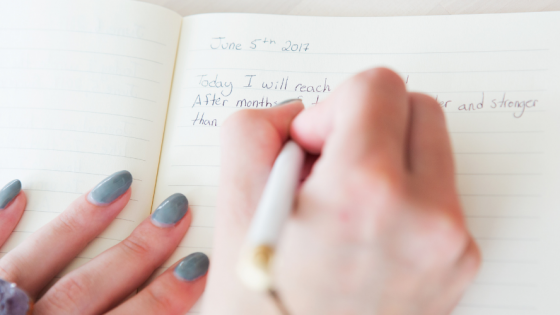 June 5th 2017
Today I will reach
After months and stronger
than